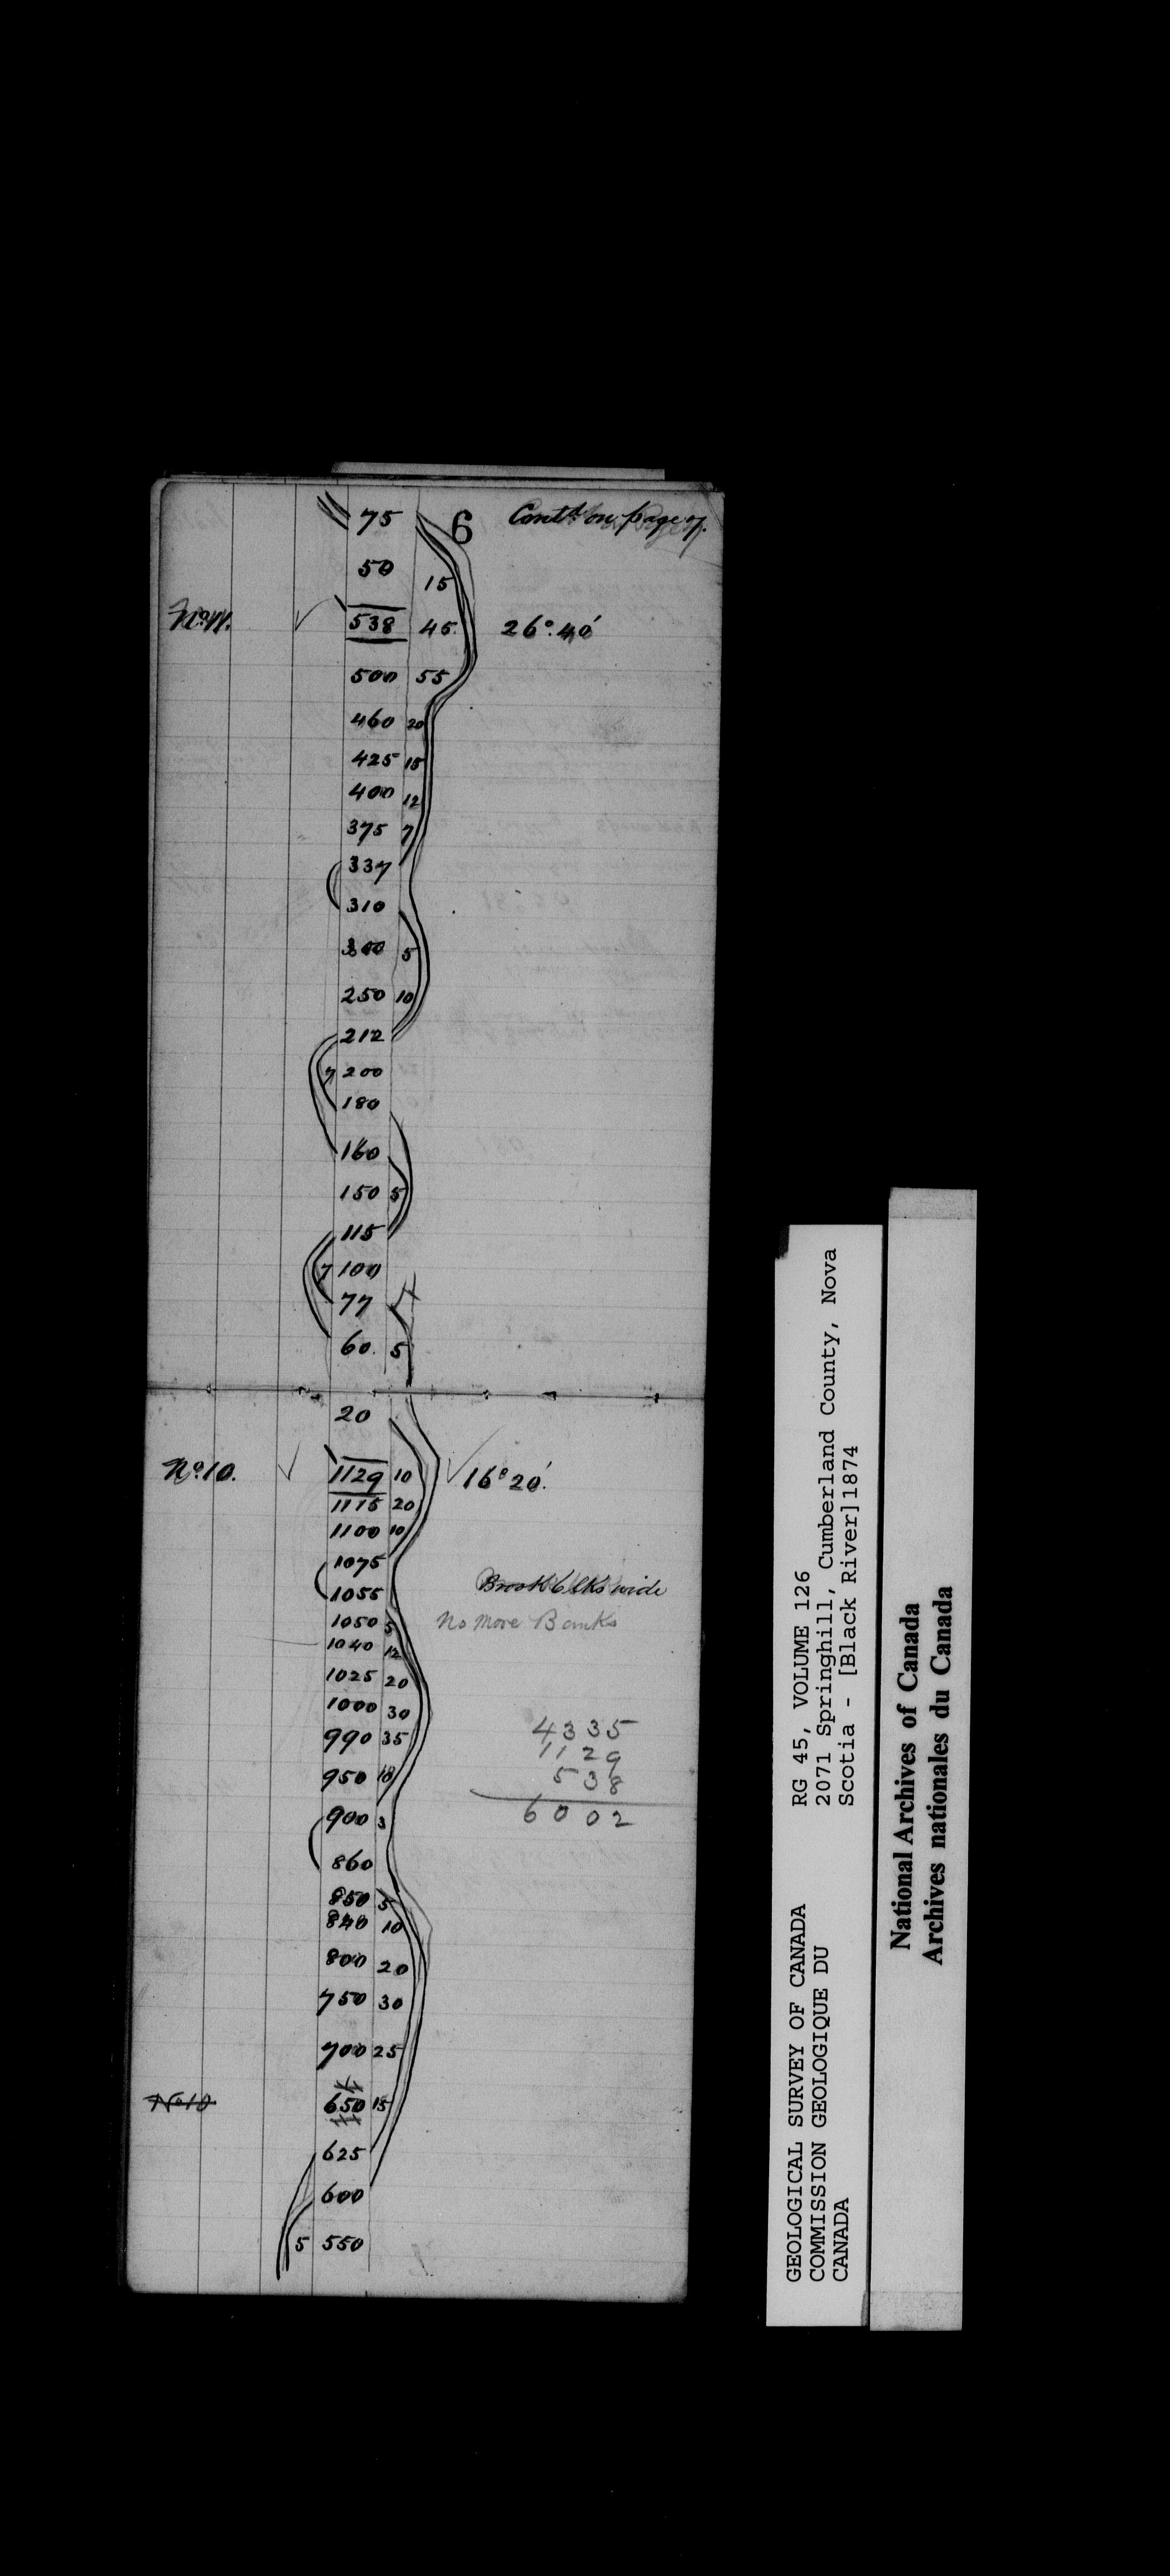 75 6 Contd on page 7.
50 15
No 11. 538 45 26°.40'
500 55
460 20
425 15
400 12
375 7
337
310
300 5
250 10
212
7 200
180
160
150 5
115
7 100
77
60. 5
20
No 10. 1129 10 16°20'.
1115 20
1100 10
1075
1055 Brook 6 lks wide
1050 5 No More Banks
1040 12
1025 20
1000 30
990 35 4335
1129
950 18 538
900 3 6002
860
850 5
840 10
800 20
750 30
700 25
No 10 650 15
625
600
5 550
GEOLOGICAL SURVEY OF CANADA RG 45, VOLUME 126
COMMISSION GEOLOGIQUE DU 2071 Springhill, Cumberland County, Nova
CANADA Scotia - [Black River]1874
National Archives of Canada
Archives nationales du Canada